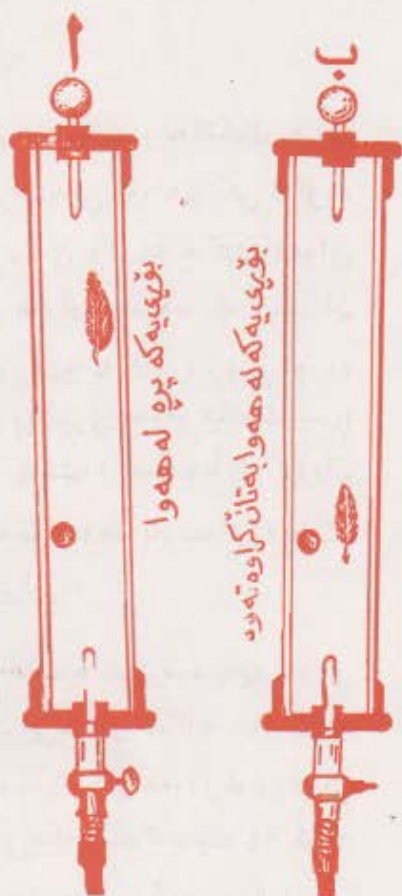 أ
ب
بۆری‌یەکە پڕە لە هەوا
بۆری‌یەکە لە هەوا بەتاڵ کراوەتەوە